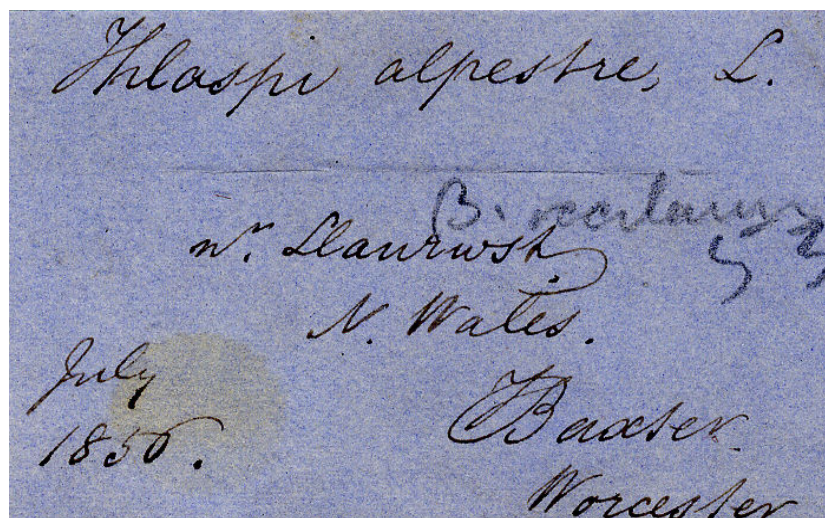 Thlaspi alpestre, L.
B.
nr. Llanrwst,
N. Wales.
July
1856.
Baxter
Worcester